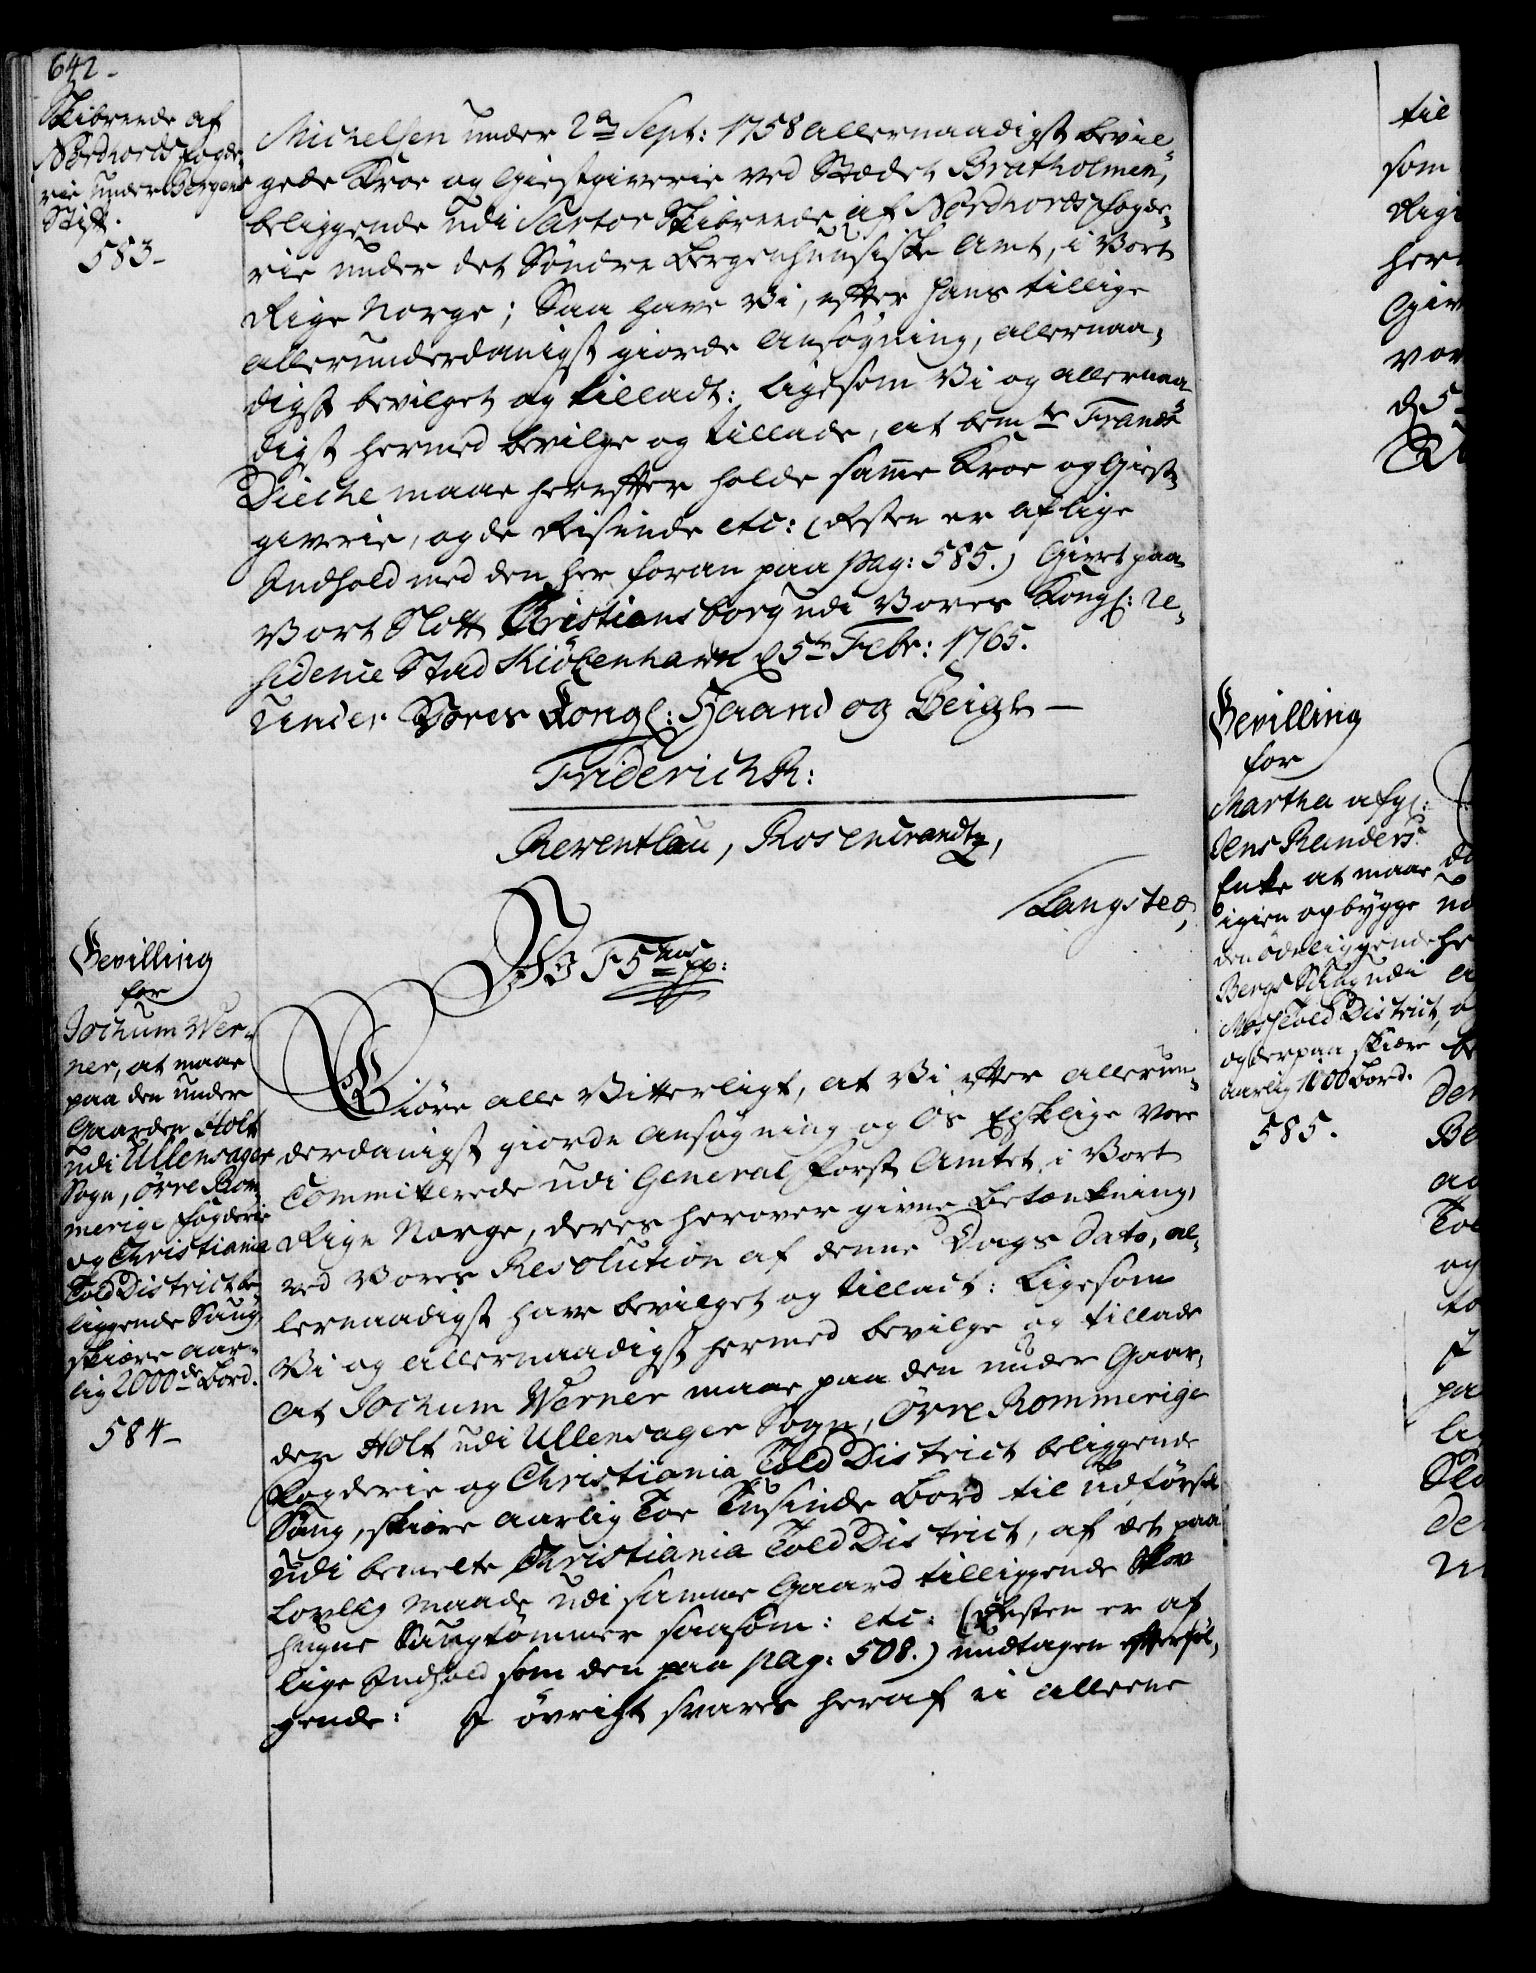 642.
Skibreede af
Nordhords Fogde-
rie under Bergens
Stift.
583.
Michelsen under 2den Sept: 1758 allernaadigst bevil-
gede Kroe og Giestgiverie ved Stædet Bratholmen,
beliggende udi Sartor Skibreede af Nordhords Fogde-
rie under det Søndre Bergenhuusiske Amt, i Vort
Rige Norge; Saa have Vi, efter hans tillige
allerunderdanigst giorde Ansøgning, allernaa-
digst bevilget og tilladt: ligesom Vi og allernaa-
digst hermed bevilge og tillade, at bemte Frands
Dieche maae herefter holde samme Kroe og Giest-
giverie, og de Reisende etc: (Resten er af lige
Indhold med den her foran paa pag: 585.) Givet paa
Vort Slott Christiansborg udi Vores Kongl: Re-
sidence Stad Kiøbenhavn d 5te Febr: 1765.
Under Vores Kongl: Haand og Zeigl.
Friderich R:
Reventlau, Rosencrandtz,
Langsted,
Bevilling
for
Jochum Wer-
ner, at maae
paa den under
Gaarden Holt
udi Ullensager
Sogn, Øvre Rom-
merige Fogderie
og Christiania
Told District be-
liggende Saug
skiære aar-
lig 2000de Bord.
584.
Wi F 5tus pp:
Giøre alle Vitterligt, at Vi efter allerun-
derdanigst giorde Ansøgning og Os Elskelige Vore
Committerede udi General Forst Amtet i Vort
Rige Norge, deres herover givne Betænkning,
ved Vores Resolution af denne Dags Dato, al-
lernaadigst have bevilget og tilladt: Ligesom
Vi og allernaadigst hermed bevilge og tillade
at Jochum Werner maae paa den under Gaar-
den Holt udi Ullensager Sogn, Øvre Rommerige
Fogderie og Christiania Told District beliggende
Saug, skiære aarlig Toe Tusinde Bord til Udførsel
udi bemelte Christiania Told District, af det paa
lovlig Maade udi samme Gaard tilliggende Skov
hugne Saugtømmer saasom: etc: (Resten er af
lige Indhold som den paa pag: 508.) undtagen efterføl-
gende: I øvrigt svares heraf ei alleene
Bevilling
for
Martha afgl:
Jens Randers
Enke at maae
igien opbygge
den øde liggende
Bergs Saug udi
Moss Told District,
og derpaa skiære
aarlig 1000 Bord.
585.
til
som